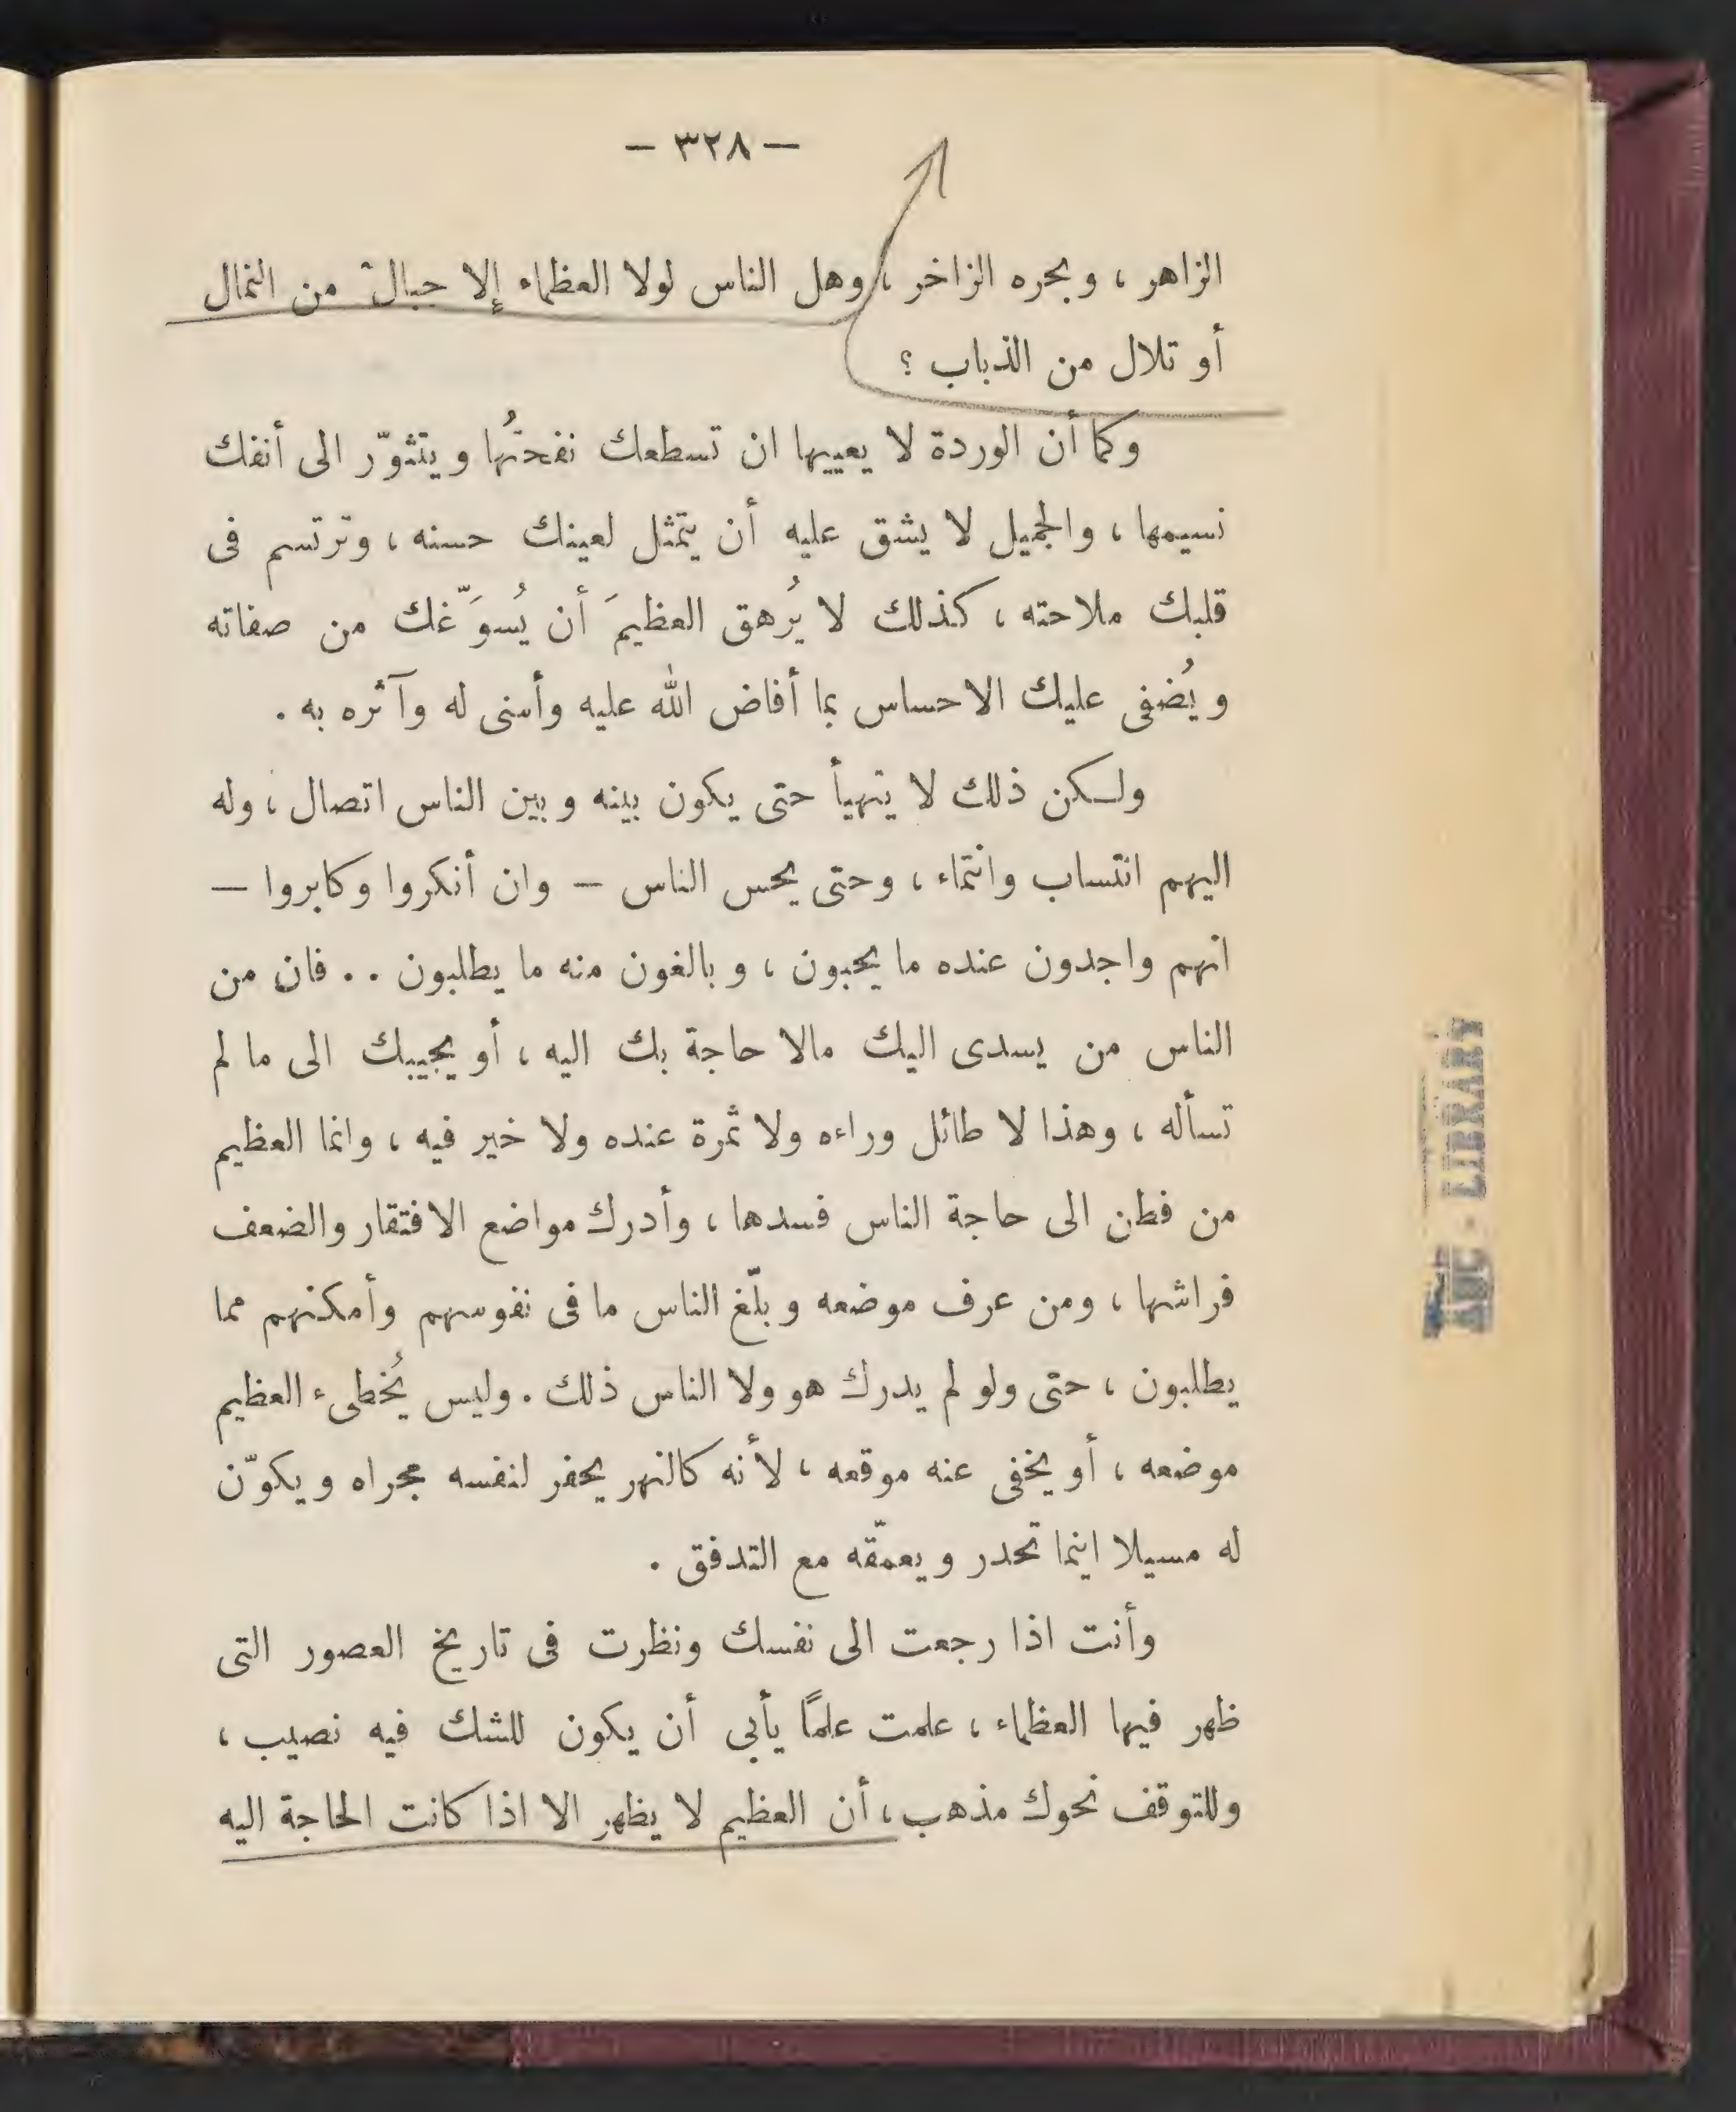 — ٣٢٨ —
الزاهر ، وبحره الزاخر ، وهل الناس لولا العظماء إلا جبال من النمال
أو تلال من الذباب ؟
وكما أن الوردة لا يعييها ان تسطعك نفحتُها ويتثوّر الى أنفك
نسيمها ، والجميل لا يشق عليه أن يتمثل لعينك حسنه ، وترتسم فى
قلبك ملاحته ، كذلك لا يُرهق العظيمَ أن يُسوَّغك من صفاته
ويُضفى عليك الاحساس بما أفاض الله عليه وأسنى له وآثره به .
ولكن ذلك لا يتهيأ حتى يكون بينه وبين الناس اتصال ، وله
اليهم انتساب وانتماء ، وحتى يحس الناس — وان أنكروا وكابروا —
انهم واجدون عنده ما يحبون ، وبالغون منه ما يطلبون . . فان من
الناس من يسدى اليك مالا حاجة بك اليه ، أو يجيبك الى ما لم
تسأله ، وهذا لا طائل وراءه ولا ثمرة عنده ولا خير فيه ، وانما العظيم
من فطن الى حاجة الناس فسدها ، وأدرك مواضع الافتقار والضعف
فراشها ، ومن عرف موضعه وبلّغ الناس ما فى نفوسهم وأمكنهم مما
يطلبون ، حتى ولو لم يدرك هو ولا الناس ذلك . وليس يُخطىء العظيم
موضعه ، أو يخفى عنه موقعه ، لأنه كالنهر يحفر لنفسه مجراه ويكوّن
له مسيلا اينما تحدر ويعمّقه مع التدفق .
وأنت اذا رجعت الى نفسك ونظرت فى تاريخ العصور التى
ظهر فيها العظماء ، علمت علمًا يأبى أن يكون للشك فيه نصيب ،
وللتوقف نحوك مذهب ، أن العظيم لا يظهر الا اذا كانت الحاجة اليه
AUC - LIBRARY